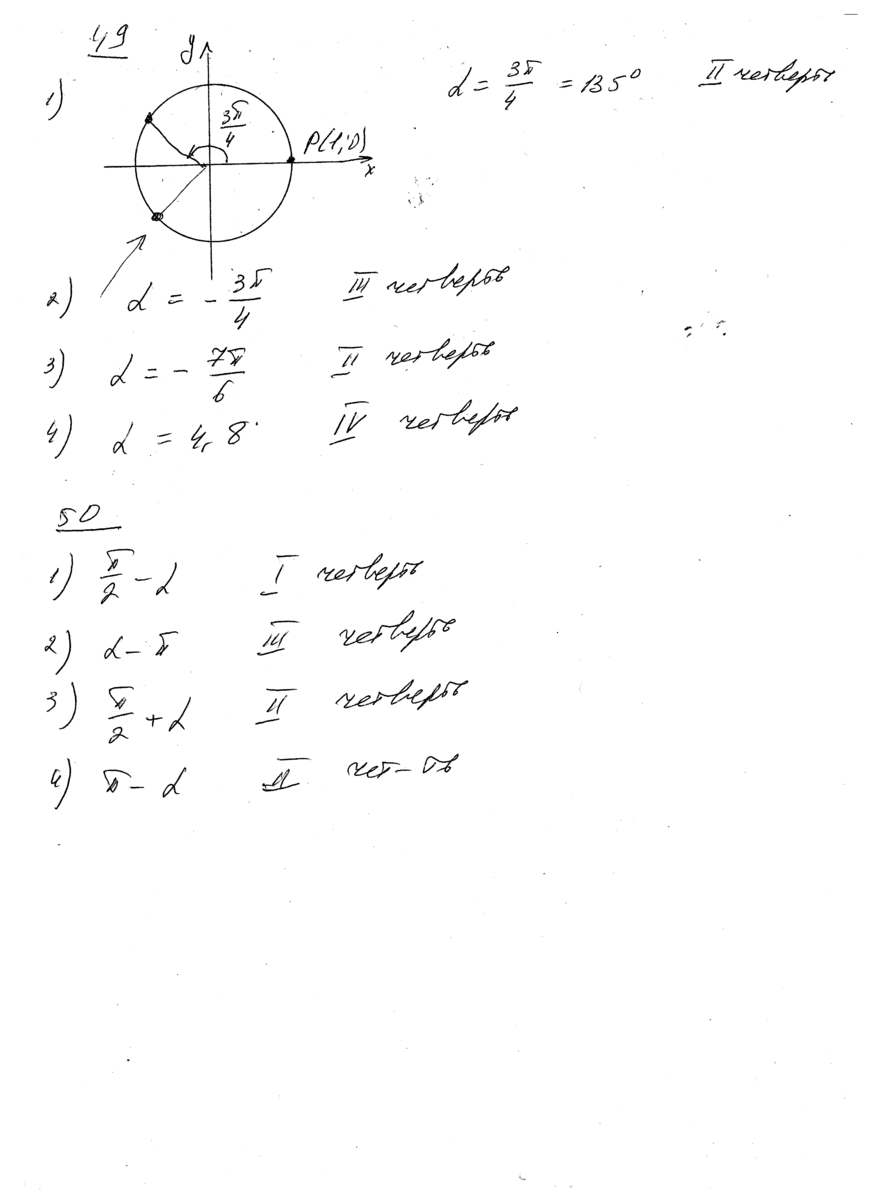 49
1) y 3π/4 P(1;0) x α = 3π/4 = 135° II четверть
2) α = - 3π/4 III четверть
3) α = - 7π/6 II четверть
4) α = 4,8 IV четверть
50
1) π/2 - α I четверть
2) α - π III четверть
3) π/2 + α II четверть
4) π - α II чет-ть